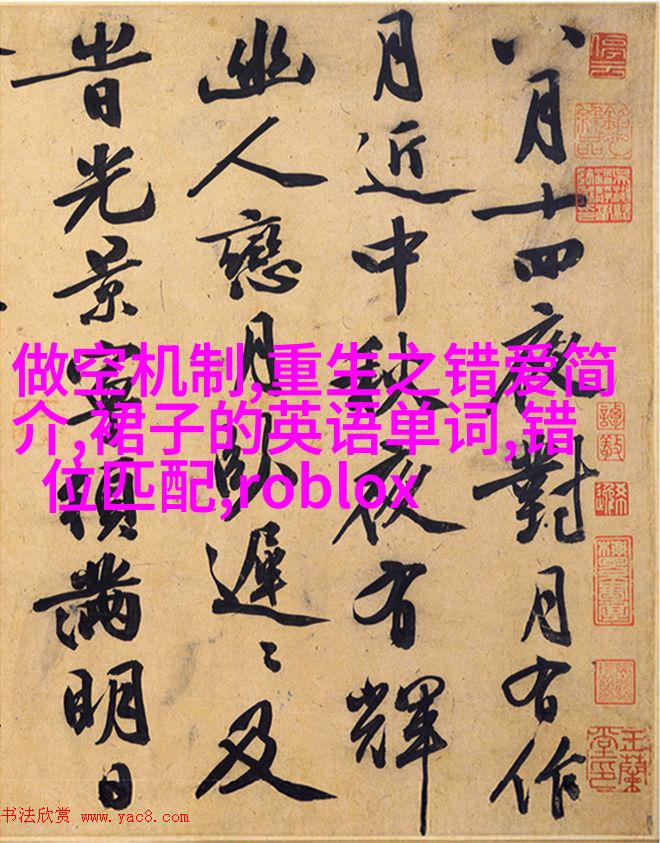 八月十四夜對月有作
月近中秋夜有輝
幽人戀月臥遲〻及
旹光景寧須滿明日
做空机制,重生之错爱简
介,裙子的英语单词,错
位匹配,roblox
停雲
玉蘭堂印
书法欣赏 www.yac8.com